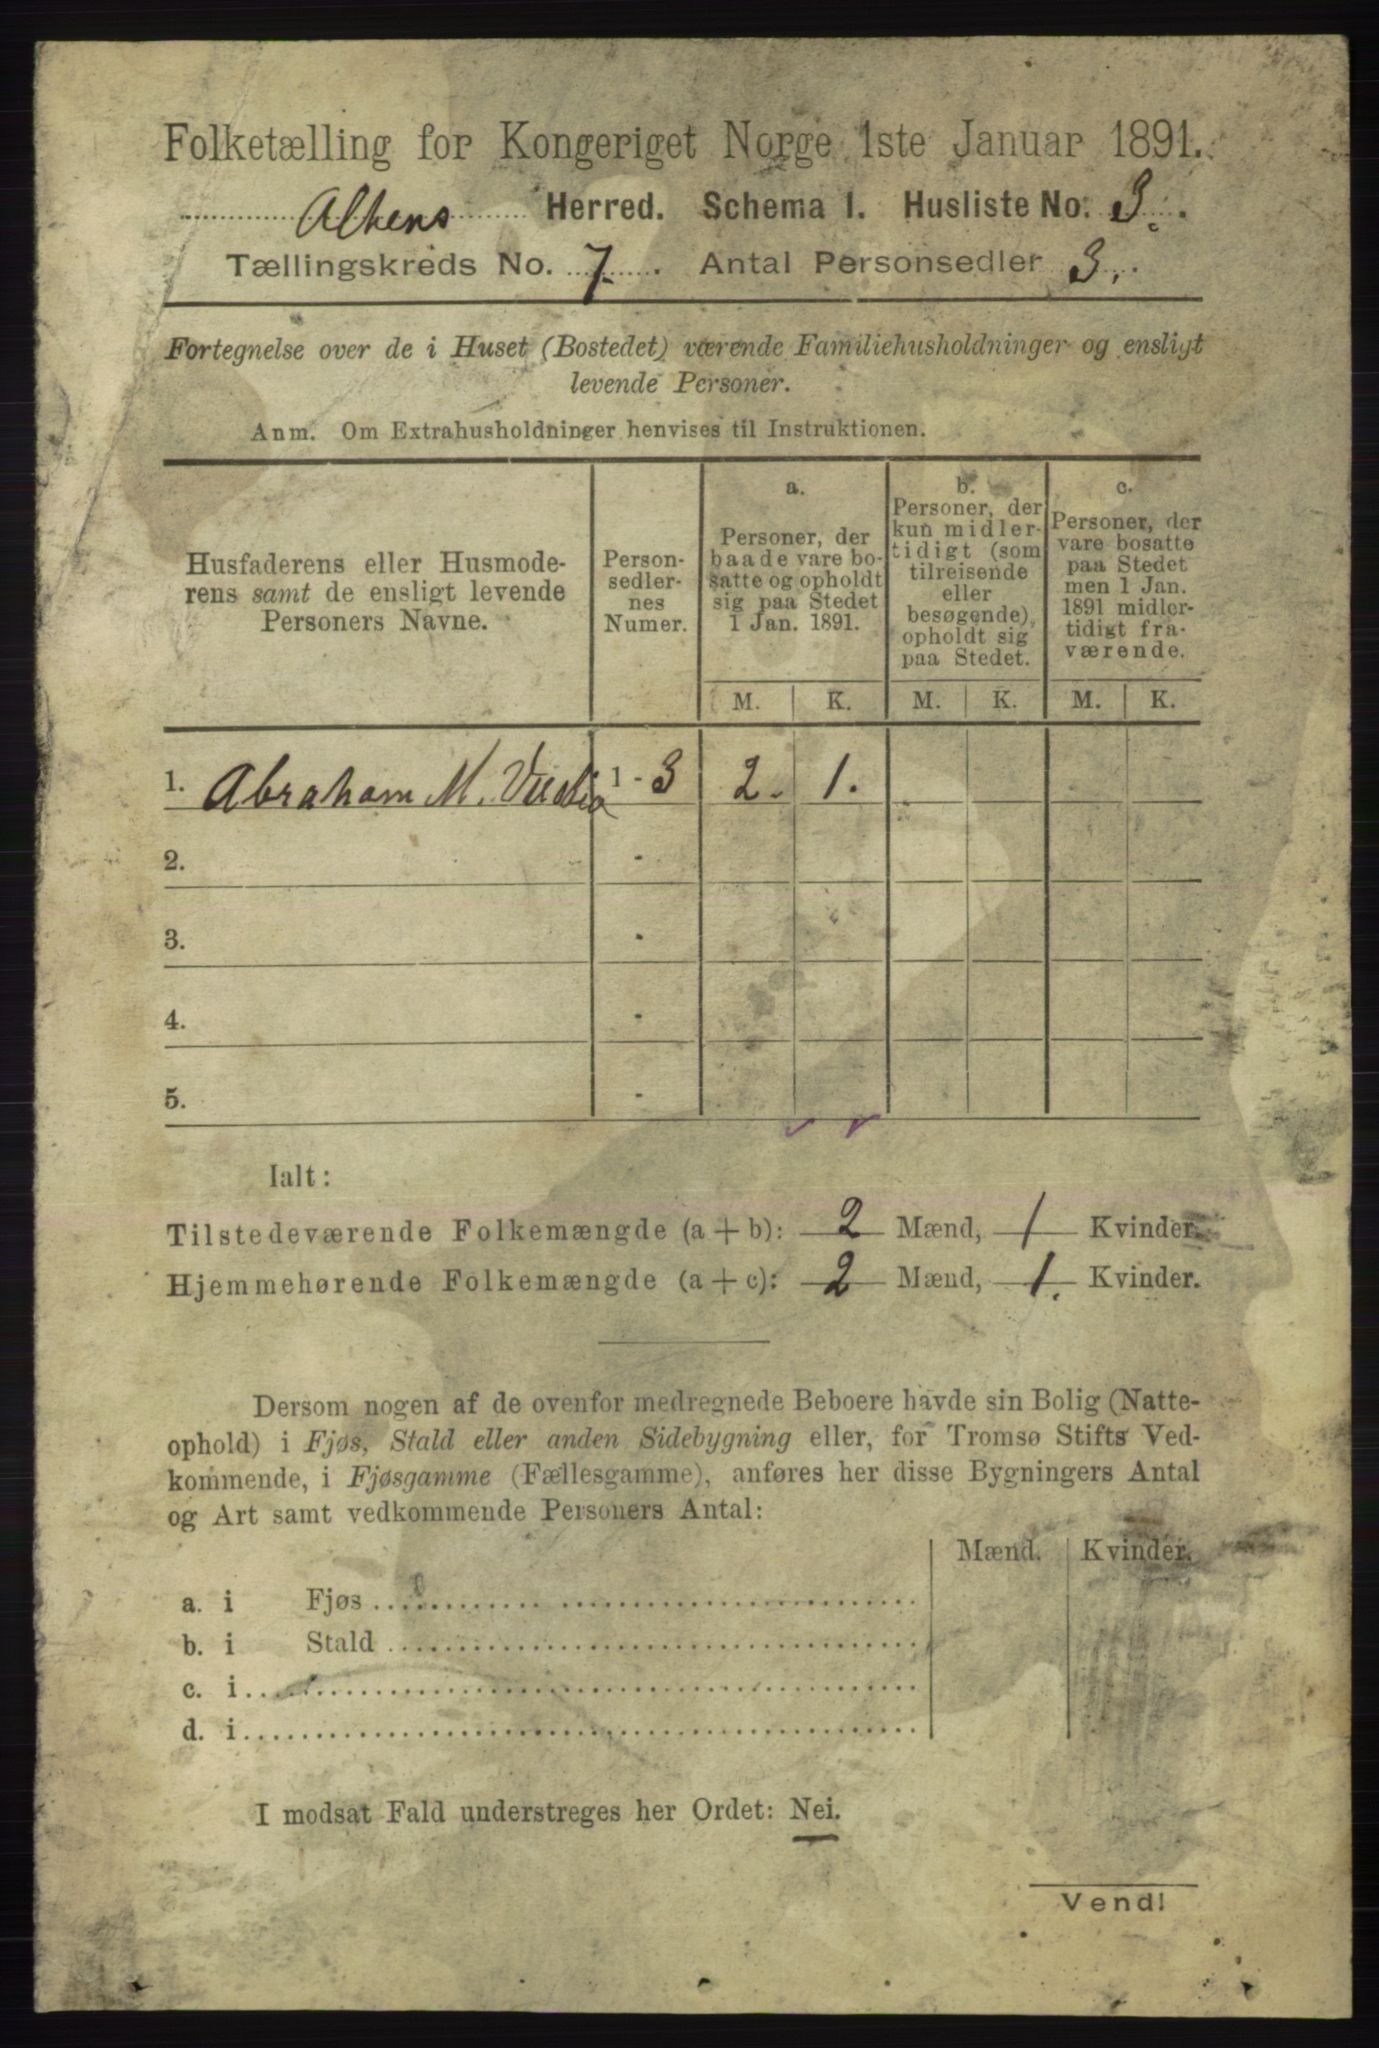 Folketælling for Kongeriget Norge 1ste Januar 1891.
Altens Herred. Schema 1. Husliste No. 3.
Tællingskreds No. 7. Antal Personsedler 3.
Fortegnelse over de i Huset (Bostedet) værende Familiehusholdninger og ensligt
levende Personer.
Anm. Om Extrahusholdninger henvises til Instruktionen.
Husfaderens eller Husmode-
rens samt de ensligt levende
Personers Navne.
Person-
sedler-
nes
Numer.
a.
Personer, der
baade vare bo-
satte og opholdt
sig paa Stedet
1 Jan. 1891.
b.
Personer, der
kun midler-
tidigt (som
tilreisende
eller
besøgende),
opholdt sig
paa Stedet.
c.
Personer, der
vare bosatte
paa Stedet
men 1 Jan.
1891 midler-
tidigt fra-
værende.
M. K. M. K. M. K.
1. Abraham M. 1 - 3 2. 1.
2. -
3. -
4. -
5. -
Ialt:
Tilstedeværende Folkemængde (a + b): 2 Mænd, 1 Kvinder.
Hjemmehørende Folkemængde (a + c): 2 Mænd, 1. Kvinder.
Dersom nogen af de ovenfor medregnede Beboere havde sin Bolig (Natte-
ophold) i Fjøs, Stald eller anden Sidebygning eller, for Tromsø Stifts Ved-
kommende, i Fjøsgamme (Fællesgamme), anføres her disse Bygningers Antal
og Art samt vedkommende Personers Antal:
Mænd. Kvinder.
a. i Fjøs
b. i Stald
c. i
d. i
I modsat Fald understreges her Ordet: Nei.
Vend!